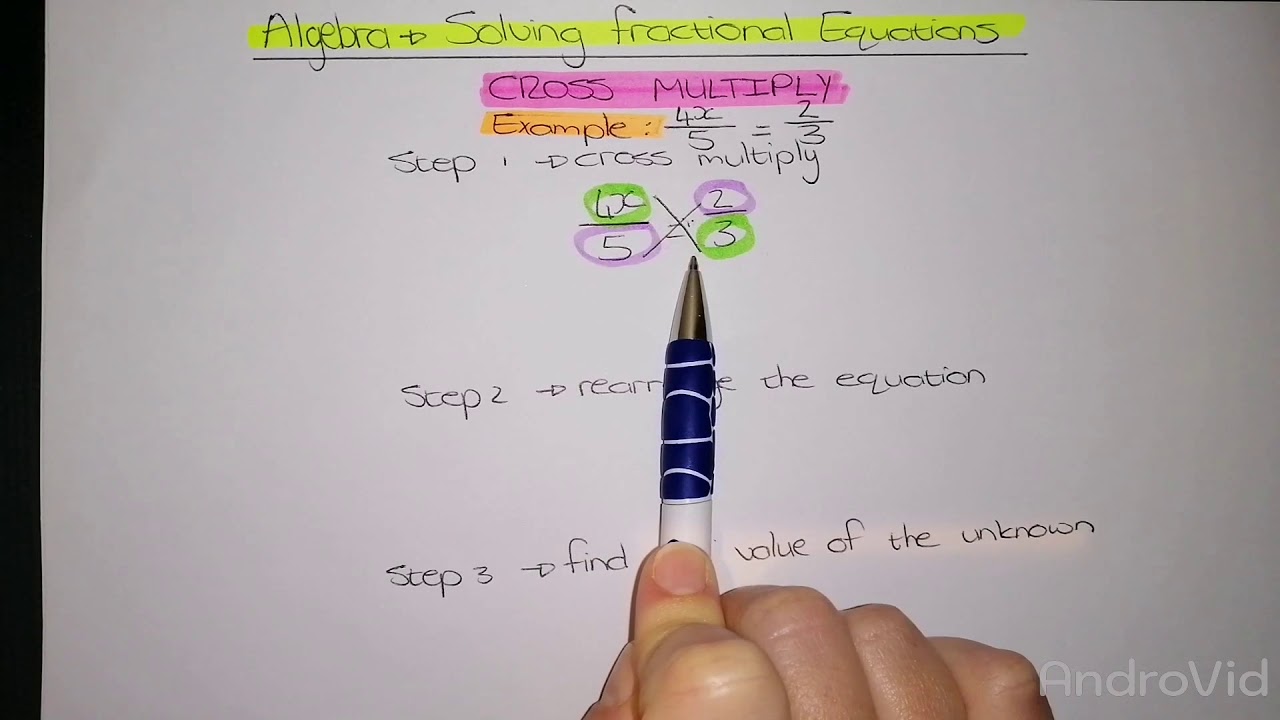 Algebra → Solving fractional Equations
CROSS MULTIPLY
Example: 4x/5 = 2/3
Step 1 → cross multiply
4x/5 = 2/3
Step 2 → the equation
Step 3 → find value of the unknown
AndroVid